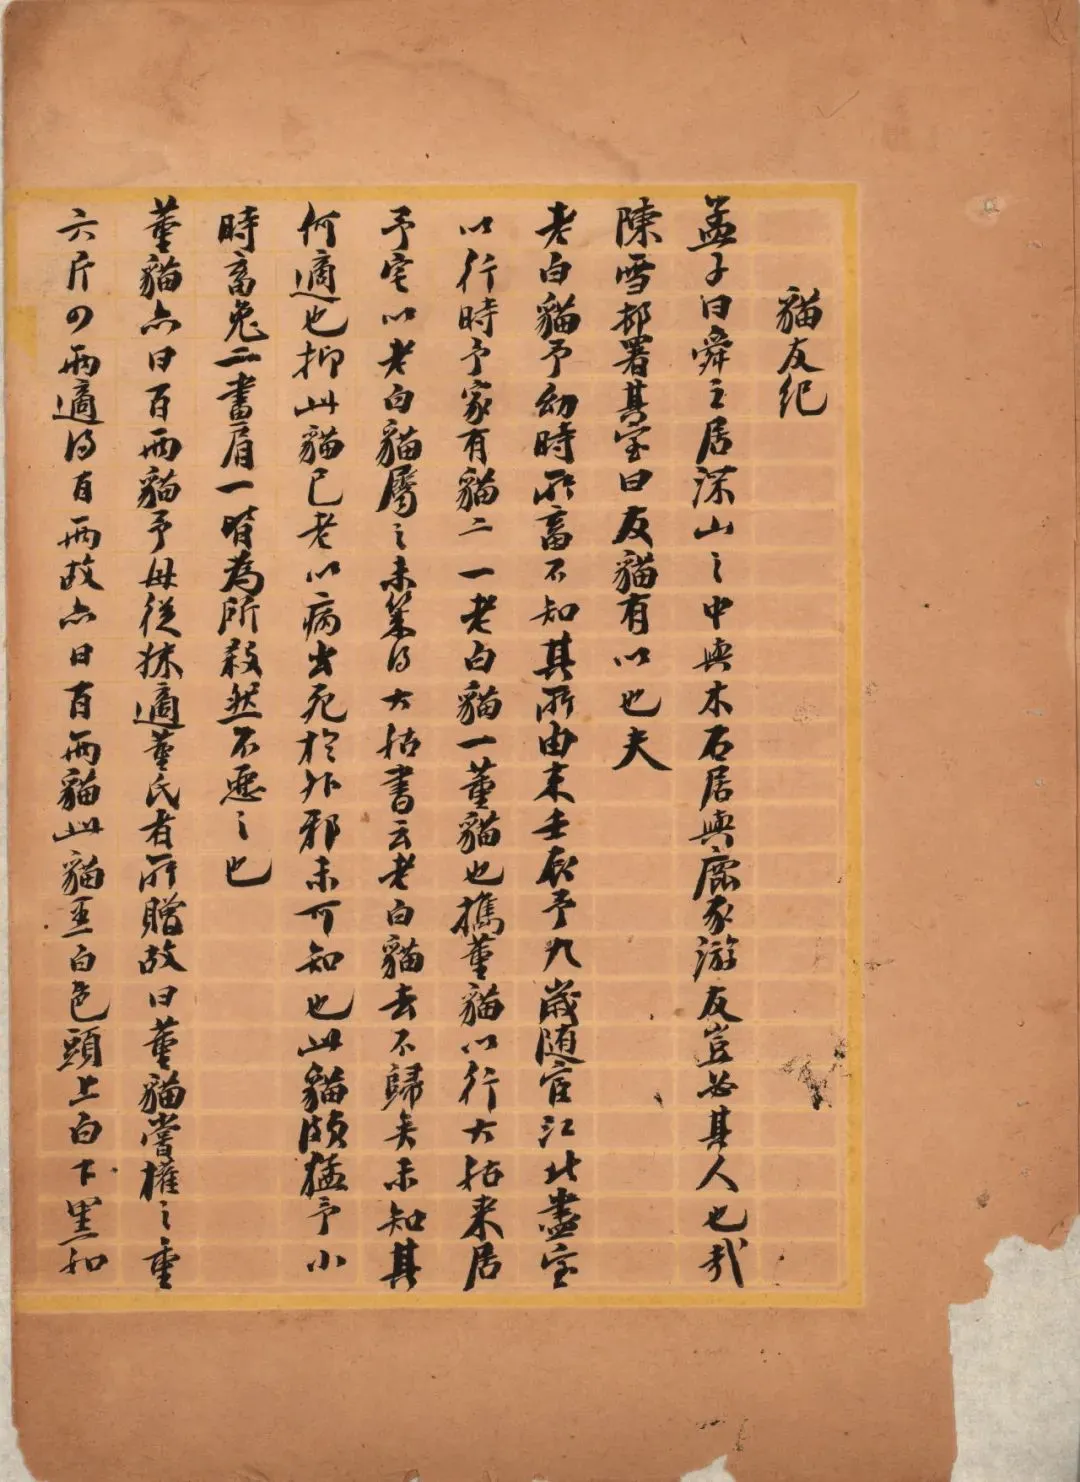 貓友紀
孟子曰舜之居深山之中與木石居與鹿豕游友豈必其人也哉
陳雪邨署其室曰友貓有以也夫
老白貓予幼時所畜不知其所由來壬辰予九歲隨宦江北盡室
以行時予家有貓二一老白貓一董貓也攜董貓以行大姑來居
予宅以老白貓屬之未幾得大姑書云老白貓去不歸矣未知其
何適也抑此貓已老以病出死於外邪未可知也此貓頗猛予小
時畜兔二畫眉一皆為所殺然不惡之也
董貓亦曰百兩貓予母從妹適董氏者所贈故曰董貓嘗權之重
六斤四兩適得百兩故亦曰百兩貓此貓亘白色頭上白下黑如